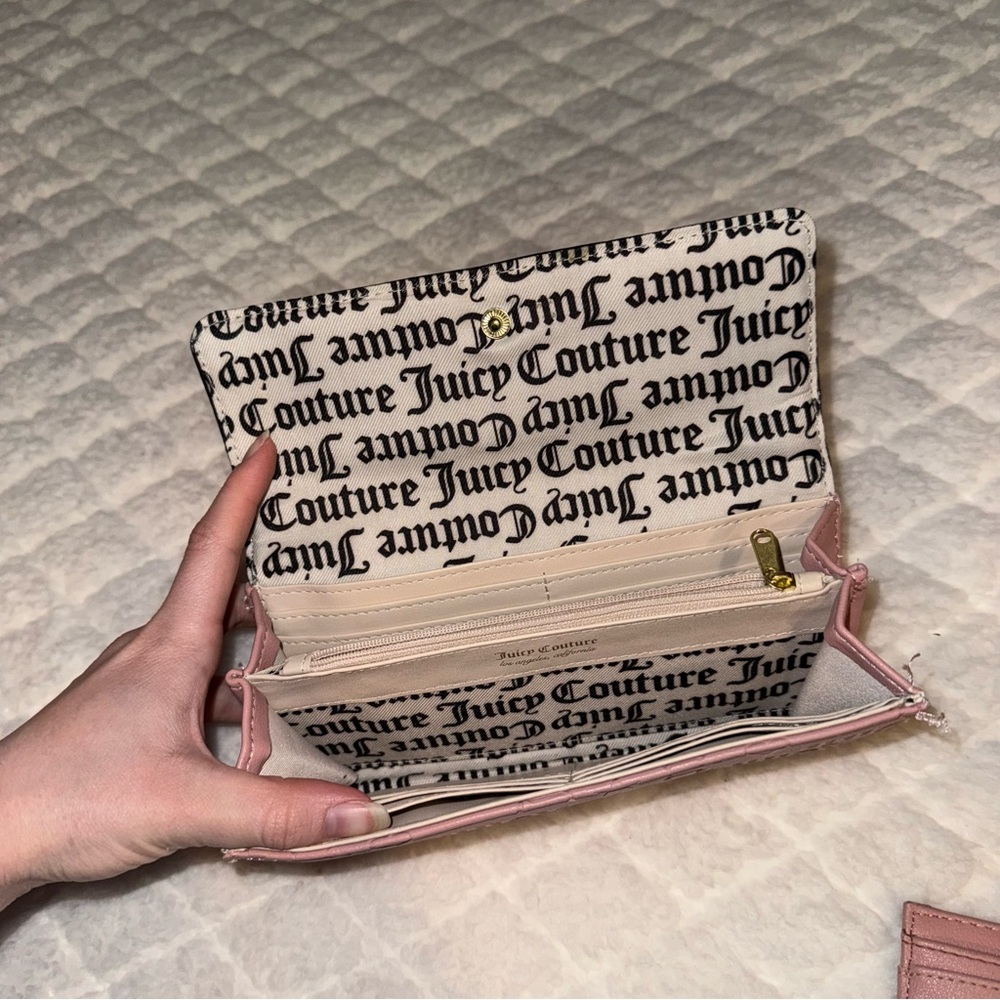 Couture Juicy Couture Juicy
Juicy Couture Juicy Couture
Couture Juicy Couture Juicy
Juicy Couture Juicy Couture
Couture Juicy Couture Juicy
Juicy Couture Juicy Couture
Juicy Couture
los angeles, california
Couture Juicy Couture
Juicy Couture Juicy Couture
Juicy Couture